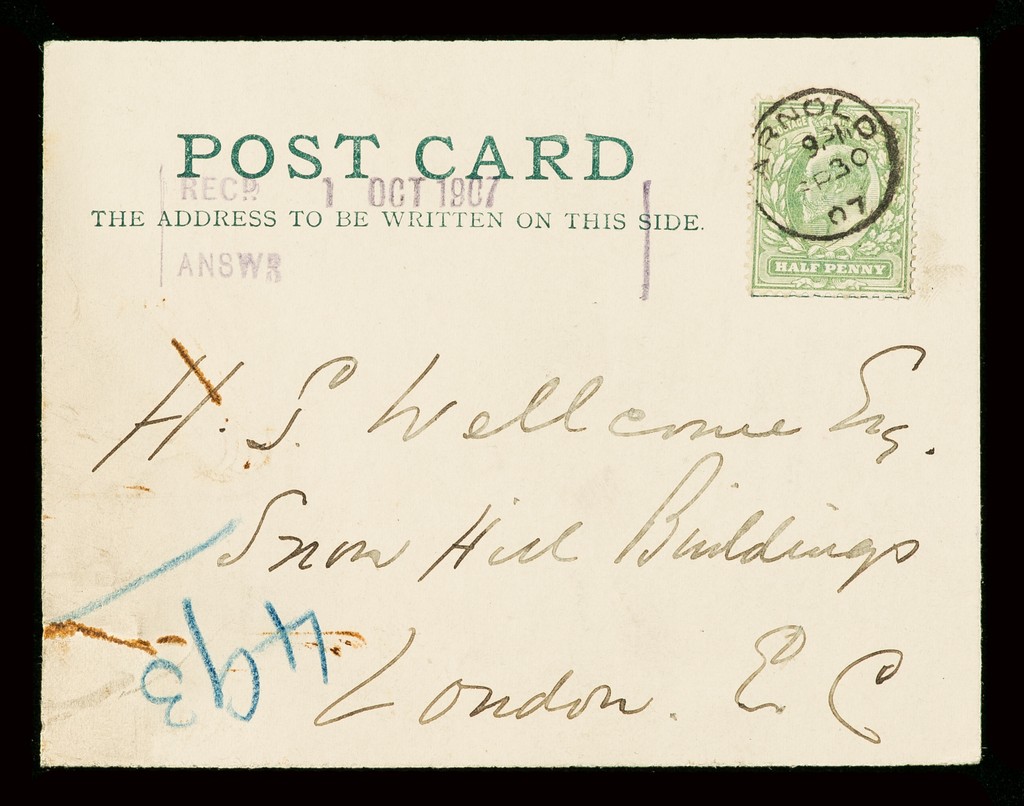 POST CARD
RECD. 1 OCT 1907
THE ADDRESS TO BE WRITTEN ON THIS SIDE.
ANSWR
ARNOLD
9 PM
SP 30
07
HALF PENNY
H. S. Wellcome Esq.
Snow Hill Buildings
London. E. C
493